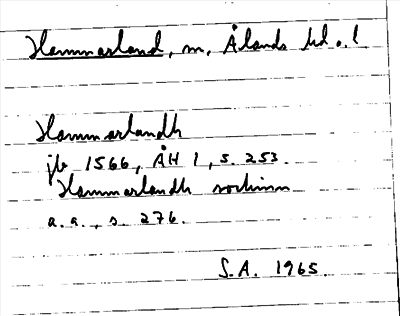 Hammarland, m, Ålands hd. o. l
Hammarlandh
jb 1566, ÅH 1, s. 253.
Hammarlandh sochnn
a.a., s. 276.
S.A. 1965.